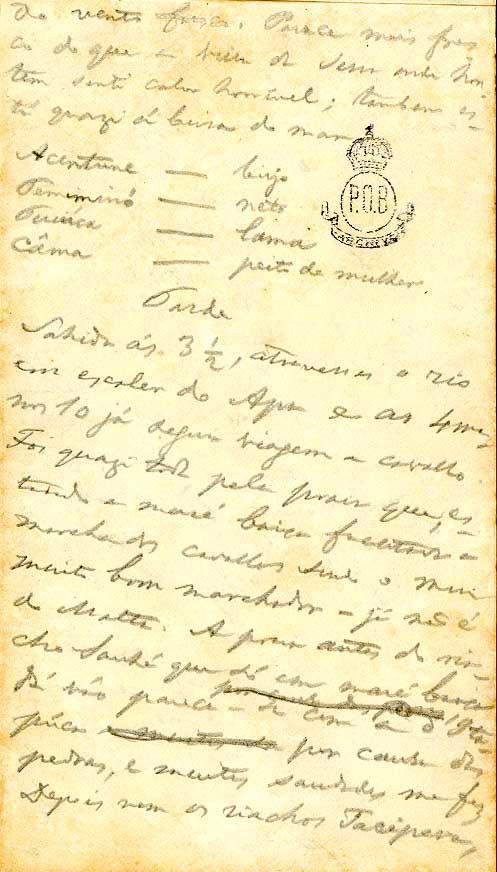 do vento fresco. Parece mais fres-
co do que a villa de        onde hon-
tem senti calor horrivel; tambem es-
tá quazi á beira do mar.
P.O.B
ARCHIVO
            — bijo
Temiminó — neto
Tuiúca — lama
Câma — peito de mulher.
Tarde
Sahida ás 3 ½, atravessei o rio
em escaler do Apa e as 4 menos
nos 10 já seguia viagem a cavallo.
Foi quazi toda pela praia que, es-
tando a maré baixa facilitava a
marcha dos cavallos sendo o meu
muito bom marchador – já não é
do Motta. A praia antes do ria-
cho Sauhé que só em maré baixa
dá vão parece-se com a d'Ita-
púca                por causa das
pedras, e muitas saudades me fez
Depois vem os riachos